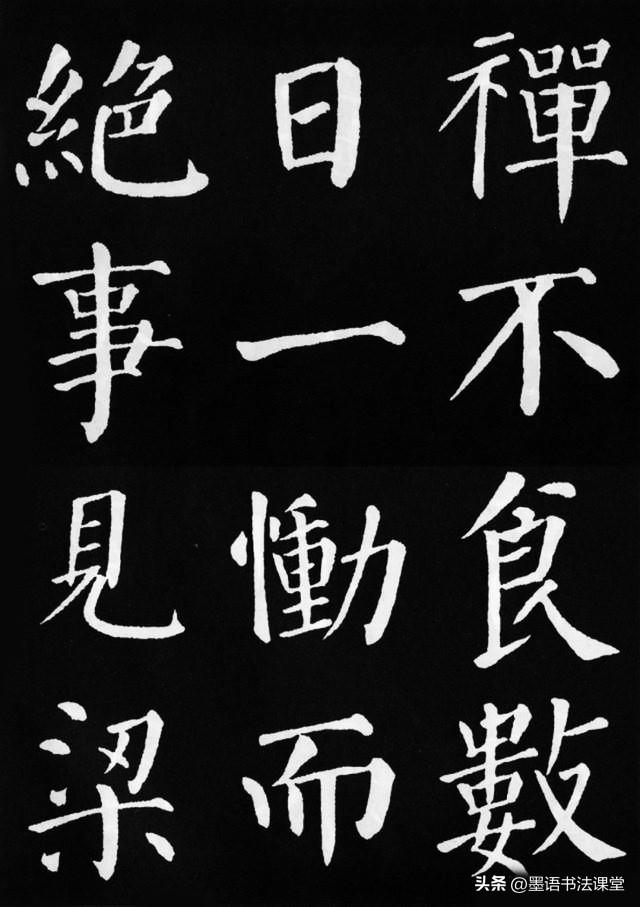 禪不食數
日一慟而
絕事見梁
头条@墨语书法课堂